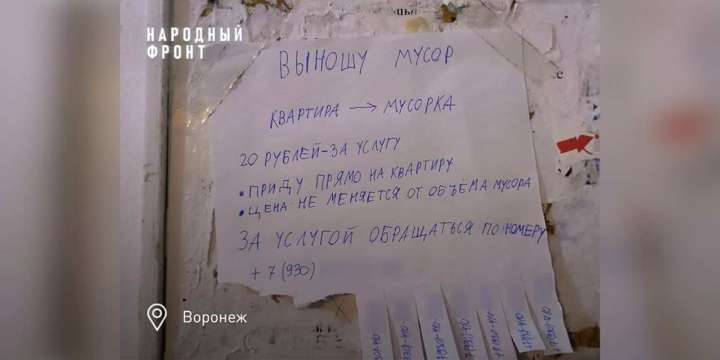 НАРОДНЫЙ
ФРОНТ
ВЫНОШУ МУСОР
КВАРТИРА → МУСОРКА
20 РУБЛЕЙ-ЗА УСЛУГУ
• ПРИДУ ПРЯМО НА КВАРТИРУ
• ЦЕНА НЕ МЕНЯЕТСЯ ОТ ОБЪЁМА МУСОРА
ЗА УСЛУГОЙ ОБРАЩАТЬСЯ ПО НОМЕРУ
+ 7 (930)
Воронеж